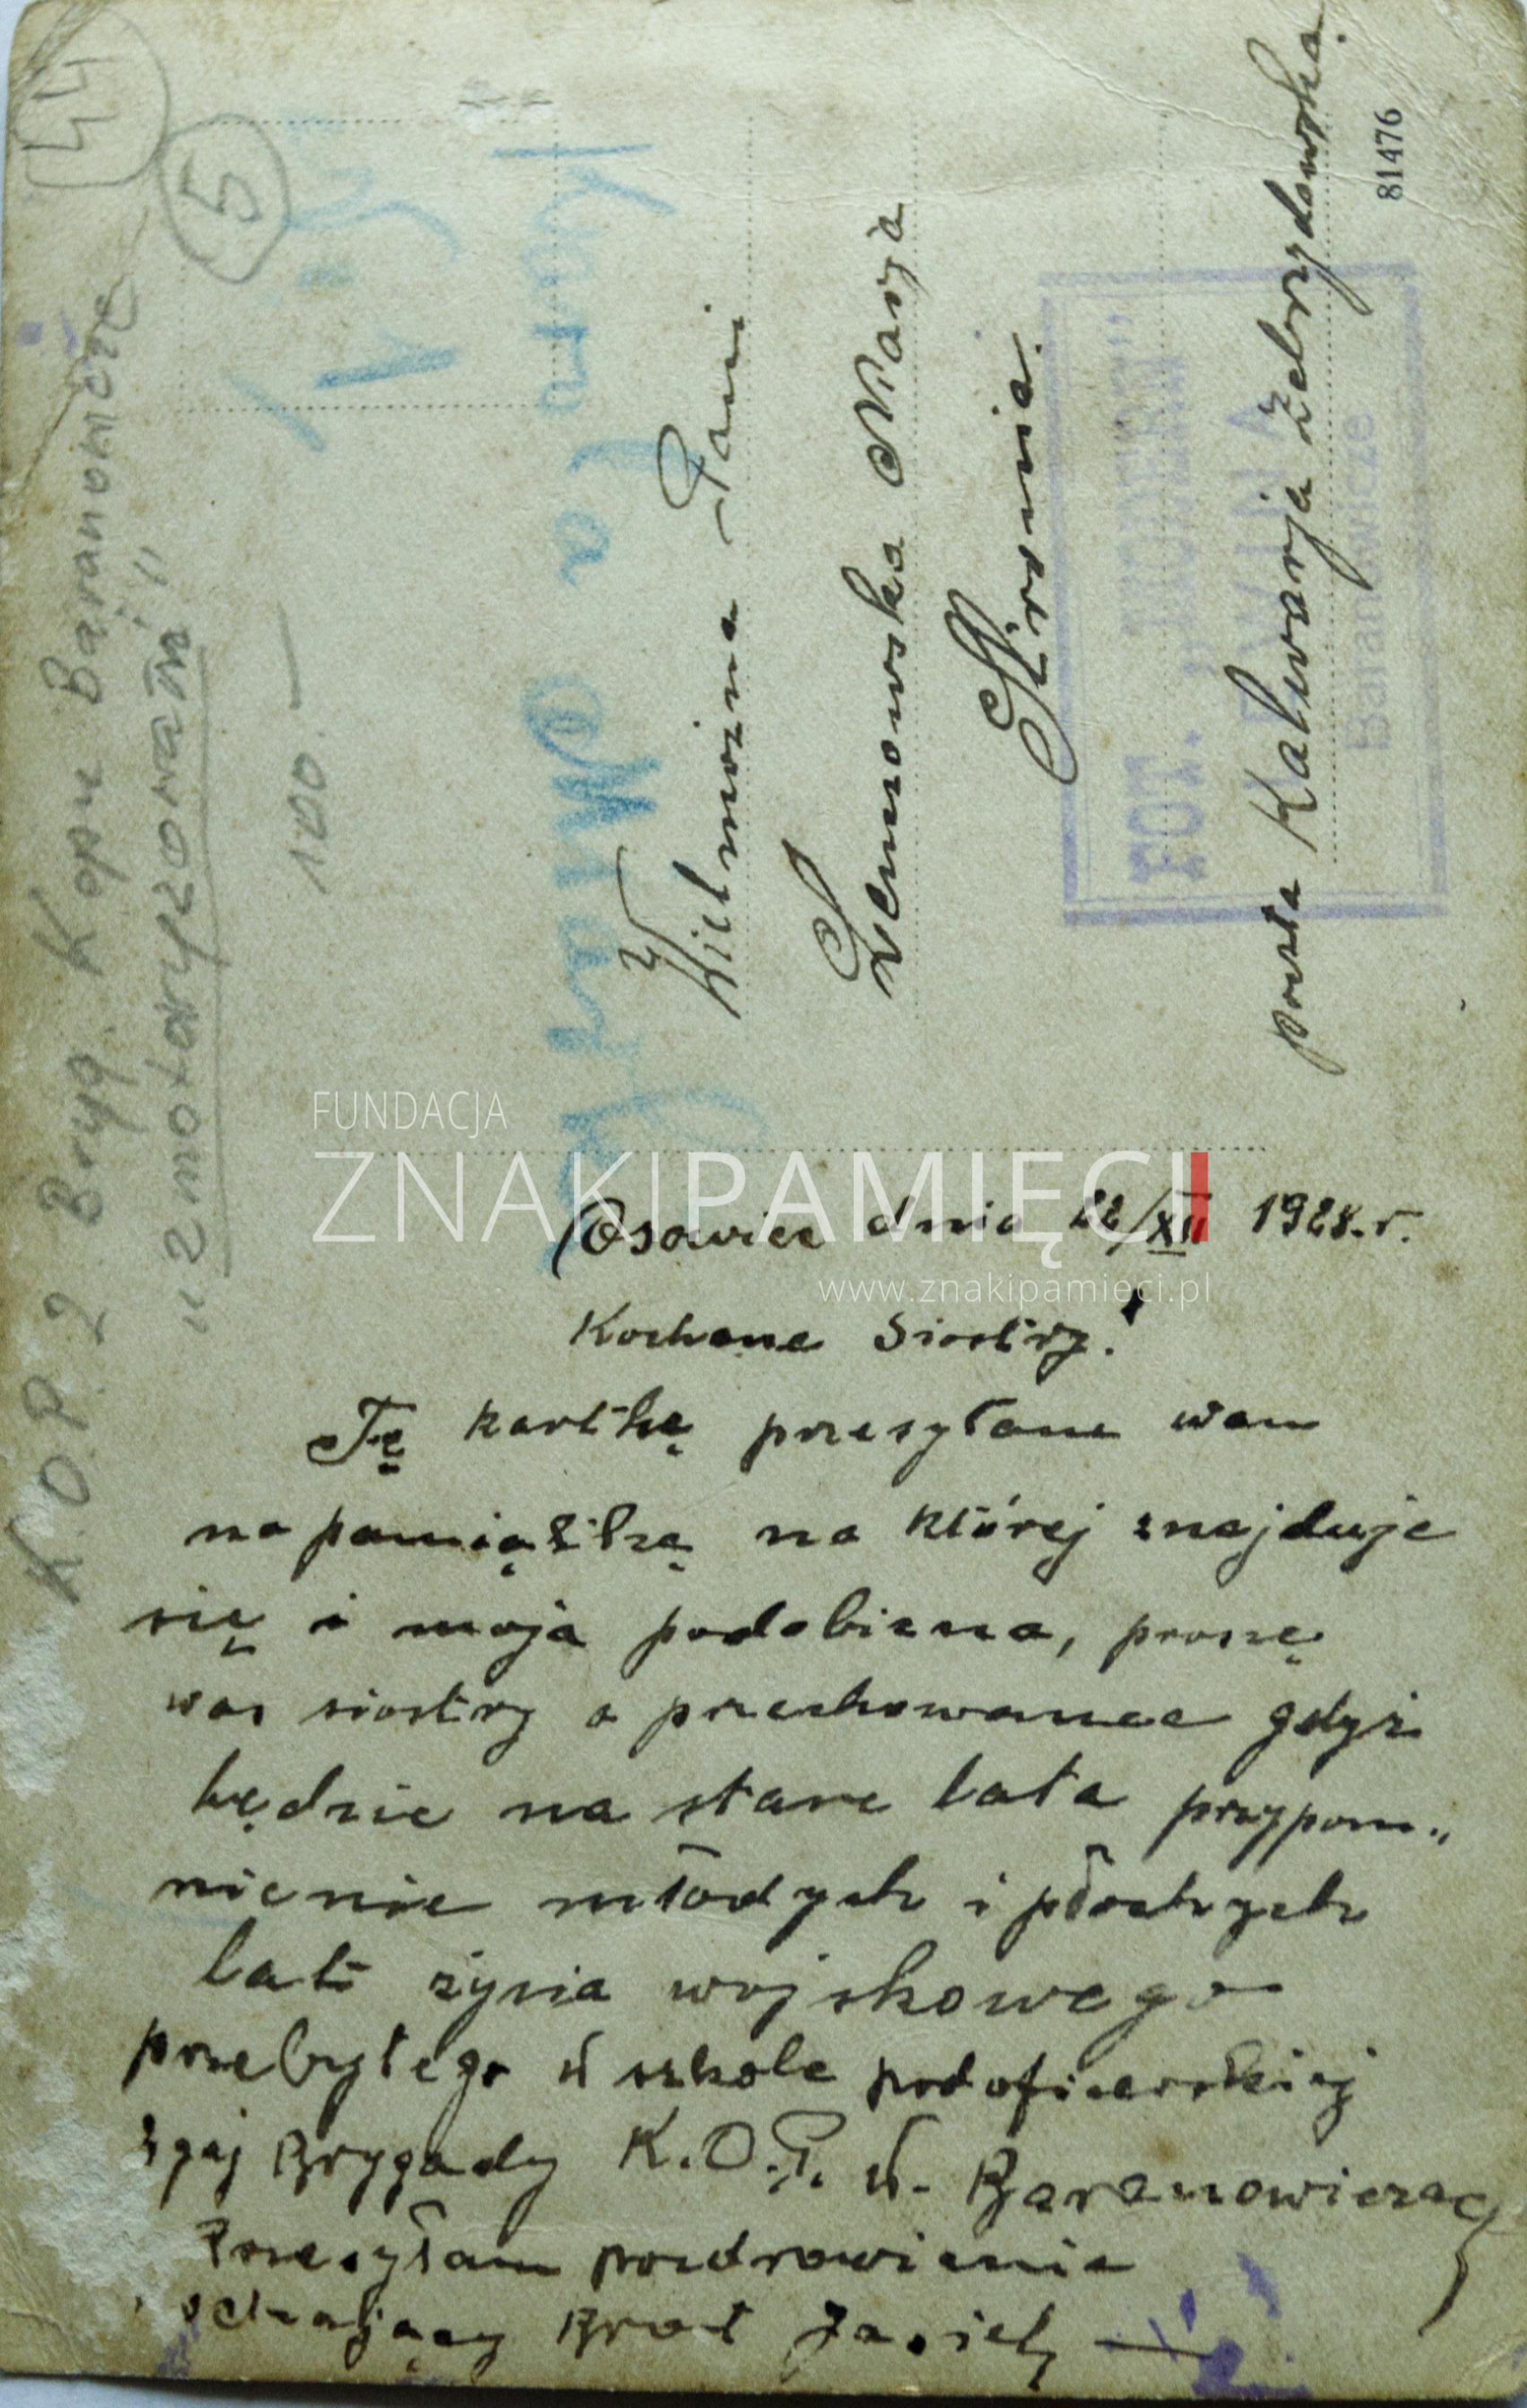 44
5
KOP 2 Bryg. Kopu Baranowicze
"zmotoryzowani"
100 —
Wielmożna Pani
Maria
Kalwarja Zebrzydowska
poczta
81476
FOT.
Baranowicze
FUNDACJA
ZNAKIPAMIĘCI
www.znakipamieci.pl
Osowiec dnia 22/XII 1928.r.
Kochane Siostry!
Tę kartkę przesyłane wam
na pamiątkę na której znajduje
się i moja podobizna, proszę
was siostry o przechowanee gdyż
będzie na stare lata przypom„
nienie młodych i płochych
lat życia wojskowego
przebytego w szkole podoficerskiej
Brygady K.O.P. w. Baranowiczach
Przesyłam pozdrowienia
Brat Józief